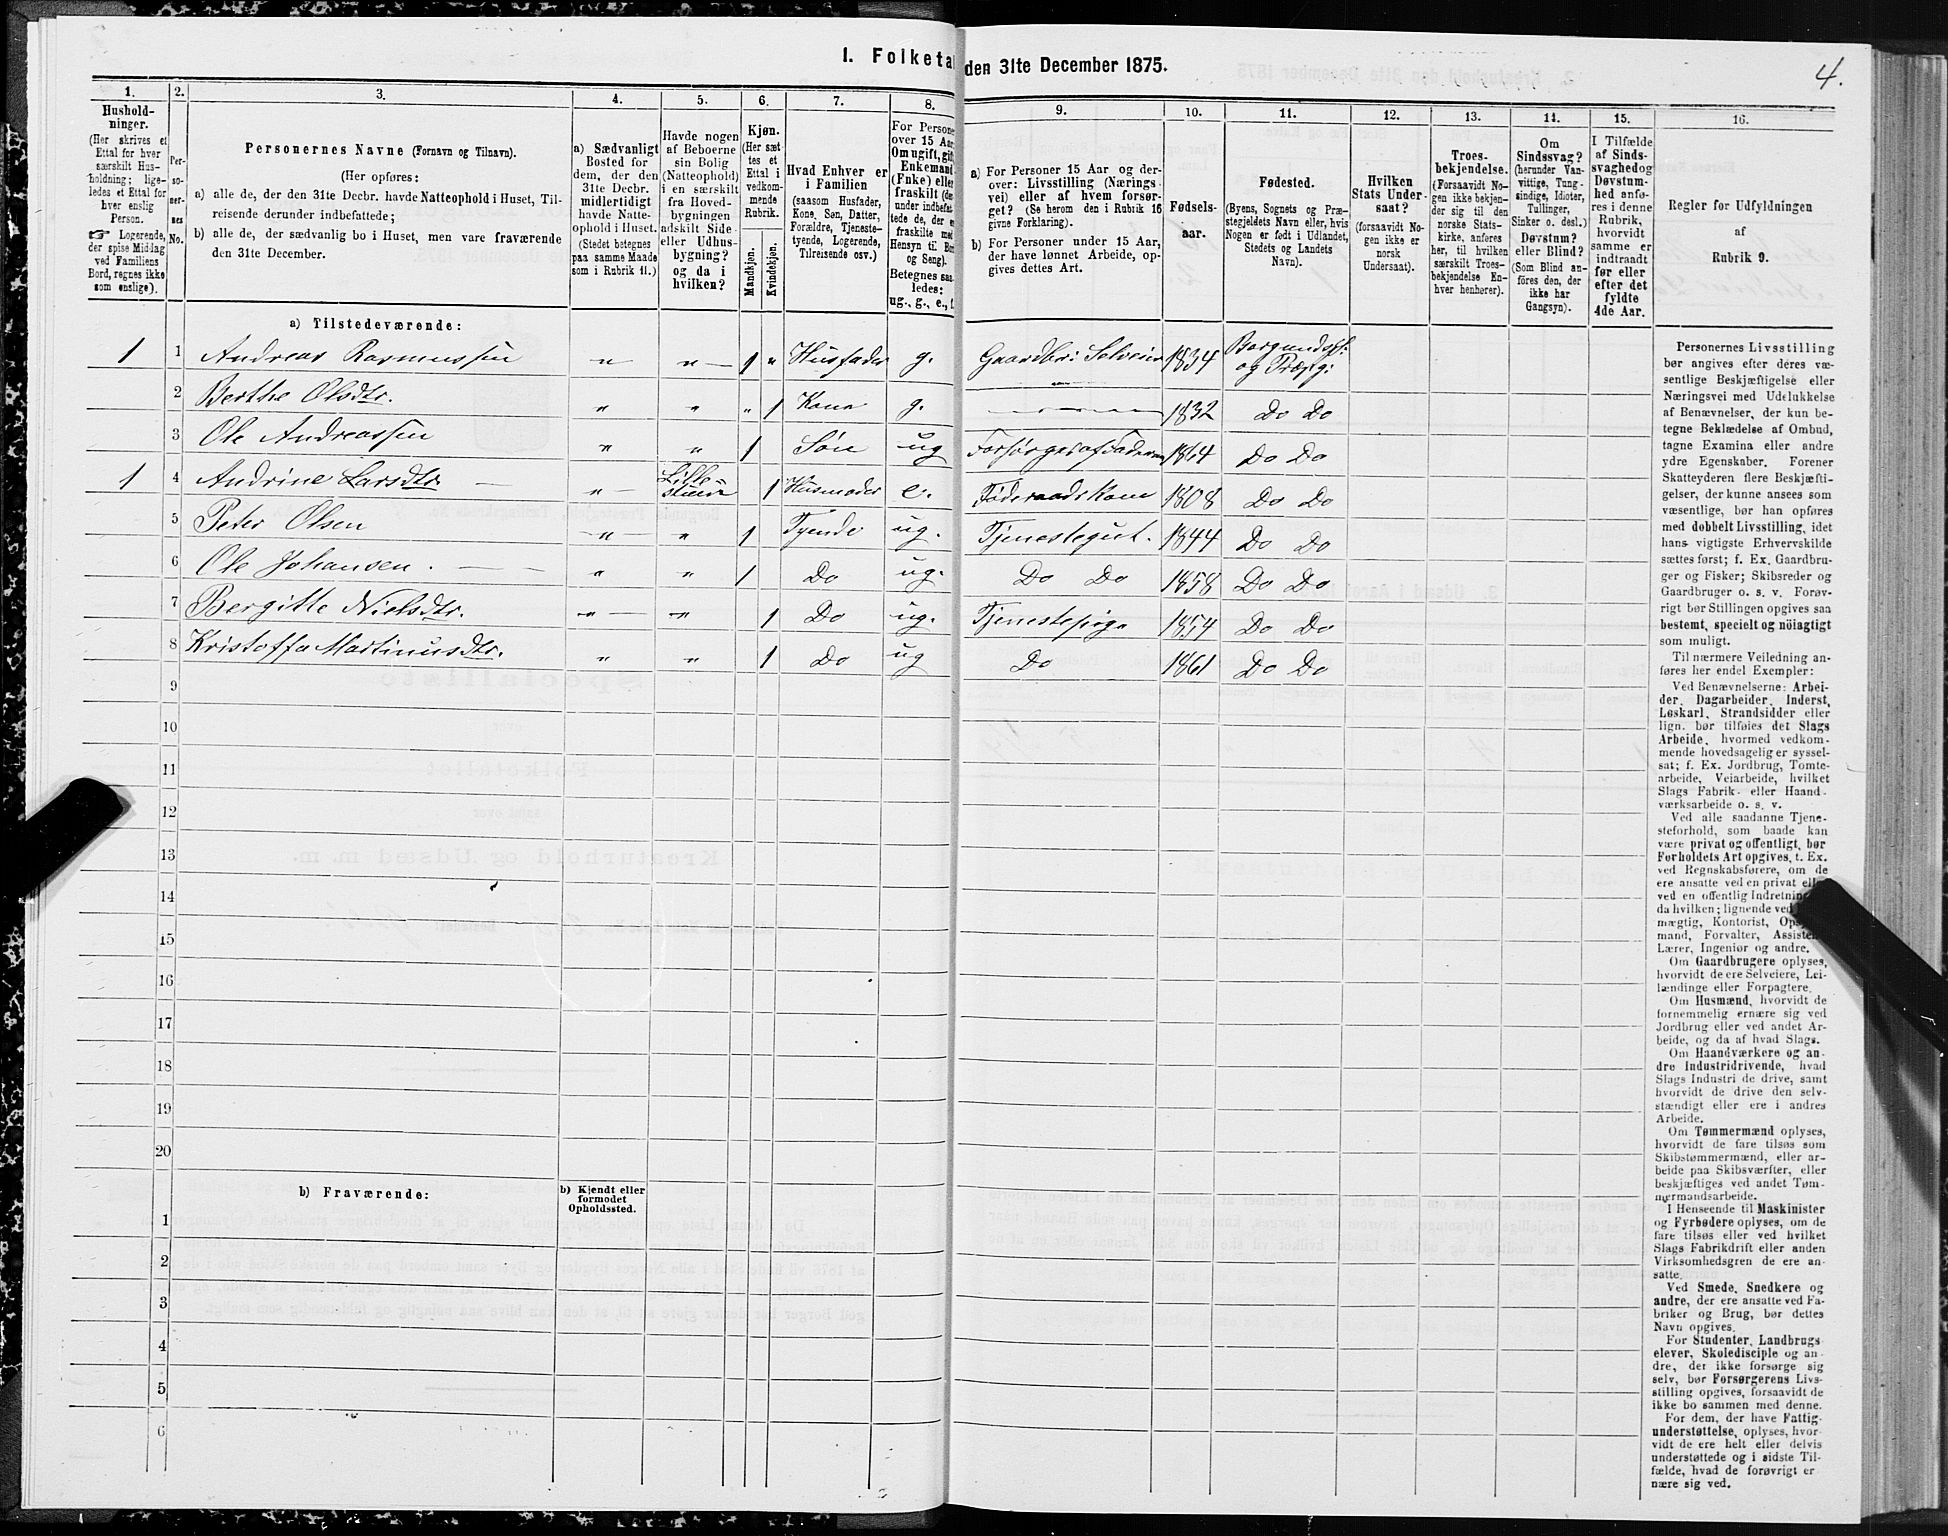 I. Folketal den 31te December 1875.
4.
1.
Hushold-
ninger.
(Her skrives et
Ettal for hver
særskilt Hus-
holdning; lige-
ledes et Ettal for
hver enslig
Person.
☞ Logerende,
der spise Middag
ved Familiens
Bord, regnes ikke
som enslige).
2.
Per-
so-
ner-
nes
No.
3.
Personernes Navne (Fornavn og Tilnavn).
(Her opføres:
a) alle de, der den 31te Decbr. havde Natteophold i Huset, Til-
reisende derunder indbefattede;
b) alle de, der sædvanlig bo i Huset, men vare fraværende
den 31te December.
4.
a) Sædvanligt
Bosted for
dem, der den
31te Decbr.
midlertidigt
havde Natte-
ophold i Huset.
(Stedet betegnes
paa samme Maade
som i Rubrik 11.)
5.
Havde nogen
af Beboerne
sin Bolig
(Natteophold)
i en særskilt
fra Hoved-
bygningen
adskilt Side-
eller Udhus-
bygning?
og da i
hvilken?
6.
Kjøn.
(Her sæt-
tes et
Ettal i
vedkom-
mende
Rubrik.
Mandkjøn.
Kvindekjøn.
7.
Hvad Enhver er
i Familien
(saasom Husfader,
Kone, Søn, Datter,
Forældre, Tjeneste-
tyende, Logerende,
Tilreisende osv.)
8.
For Persone
over 15 Aar
Om ugift, gif
Enkemand
(Enke) eller
fraskilt (de
under indbefat
tede de, der e
fraskilte med
Hensyn til Bo
og Seng).
Betegnes saa
ledes:
ug., g., e., f.
9.
a) For Personer 15 Aar og der-
over: Livsstilling (Nærings-
vei) eller af hvem forsør-
get? (Se herom den i Rubrik 16
givne Forklaring).
b) For Personer under 15 Aar,
der have lønnet Arbeide, op-
gives dettes Art.
10.
Fødsels-
aar.
11.
Fødested.
(Byens, Sognets og Præ-
stegjeldets Navn eller, hvis
Nogen er født i Udlandet,
Stedets og Landets
Navn).
12.
Hvilken
Stats Under-
saat?
(forsaavidt No-
gen ikke er
norsk
Undersaat).
13.
Troes-
bekjendelse.
(Forsaavidt No-
gen ikke bekjen-
der sig til den
norske Stats-
kirke, anføres
her, til hvilken
særskilt Troes-
bekjendelse En-
hver henhører).
14.
Om
Sindssvag?
(herunder Van-
vittige, Tung-
sindige, Idioter,
Tullinger,
Sinker o. desl.)
Døvstum?
eller Blind?
(Som Blind an-
føres den, der
ikke har
Gangsyn).
15.
I Tilfælde
af Sinds-
svaghed og
Døvstum-
hed anfø-
res i denne
Rubrik,
hvorvidt
samme er
indtraadt
før eller
efter det
fyldte
4de Aar.
16.
Regler for Udfyldningen
af
Rubrik 9.
a) Tilstedeværende:
1 1 Andreas Rasmussen „ „ 1 „ Husfader g. Gaardbr: Selveier 1834 Borgunds S. og Præstg:
2 Berthe Olsdtr. „ „ „ 1 Kone g. 1832 Do Do
3 Ole Andreassen „ „ 1 Søn ug Forsørges af Faderen 1864 Do Do
1 4 Andrine Larsdtr. „ Lille-stuen 1 Husmoder e. Føderaads Kone 1808 Do Do
5 Peter Olsen „ „ 1 Tyende ug. Tjenestegut. 1844 Do Do
6 Ole Johansen. „ „ 1 Do ug. Do Do 1858 Do Do
7 Bergitte Nielsdtr. „ „ 1 Do ug. Tjenestepige 1854 Do Do
8 Kristoffa Martinusdtr. „ „ 1 Do ug Do 1861 Do Do
9
10
11
12
13
14
15
16
17
18
19
20
b) Fraværende:
b) Kjendt eller
formodet
Opholdssted.
1
2
3
4
5
6
Personernes Livsstilling
bør angives efter deres væ-
sentlige Beskjæftigelse eller
Næringsvei med Udelukkelse
af Benævnelser, der kun be-
tegne Beklædelse af Ombud,
tagne Examina eller andre
ydre Egenskaber. Forener
Skatteyderen flere Beskjæfti-
gelser, der kunne ansees som
væsentlige, bør han opføres
med dobbelt Livsstilling, idet
hans vigtigste Erhvervskilde
sættes først; f. Ex. Gaardbru-
ger og Fisker; Skibsreder og
Gaardbruger o. s. v. Forøv-
rigt bør Stillingen opgives saa
bestemt, specielt og nöiagtigt
som muligt.
Til nærmere Veiledning an-
føres her endel Exempler:
Ved Benævnelserne: Arbei-
der, Dagarbeider, Inderst,
Løskarl, Strandsidder eller
lign. bør tilføies det Slags
Arbeide, hvormed vedkom-
mende hovedsagelig er syssel-
sat; f. Ex. Jordbrug, Tomte-
arbeide, Veiarbeide, hvilket
Slags Fabrik- eller Haand-
værksarbeide o. s. v.
Ved alle saadanne Tjene-
steforhold, som baade kan
være privat og offentligt, bør
Forholdets Art opgives, t. Ex.
ved Regnskabsførere, om de
ere ansatte ved en privat elle
ved en offentlig Indretning
da hvilken; lignende ved
mægtig, Kontorist, Ops
mand, Forvalter, Assisten
Lærer, Ingeniør og andre.
Om Gaardbrugere oplyses,
hvorvidt de ere Selveiere, Lei-
lændinge eller Forpagtere.
Om Husmænd, hvorvidt de
fornemmelig ernære sig ved
Jordbrug eller ved andet Ar-
beide, og da af hvad Slags.
Om Haandværkere og an-
dre Industridrivende, hvad
Slags Industri de drive, samt
hvorvidt de drive den selv-
stændigt eller ere i andres
Arbeide.
Om Tømmermænd oplyses,
hvorvidt de fare tilsøs som
Skibstømmermænd, eller ar-
beide paa Skibsværfter, eller
beskjæftiges ved andet Tøm-
mermandsarbeide.
I Henseende til Maskinister
og Fyrbødere oplyses, om de
fare tilsøs eller ved hvilket
Slags Fabrikdrift eller anden
Virksomhedsgren de ere an-
satte.
Ved Smede, Snedkere og
andre, der ere ansatte ved Fa-
briker og Brug, bør dettes
Navn opgives.
For Studenter, Landbrugs-
elever, Skoledisciple og an-
dre, der ikke forsørge sig
selv, bør Forsørgerens Livs-
stilling opgives, forsaavidt de
ikke bo sammen med denne.
For dem, der have Fattig-
understøttelse, oplyses, hvor-
vidt de ere helt eller delvis
understøttede og i sidste Til-
fælde, hvad de forøvrigt er
nære sig ved.